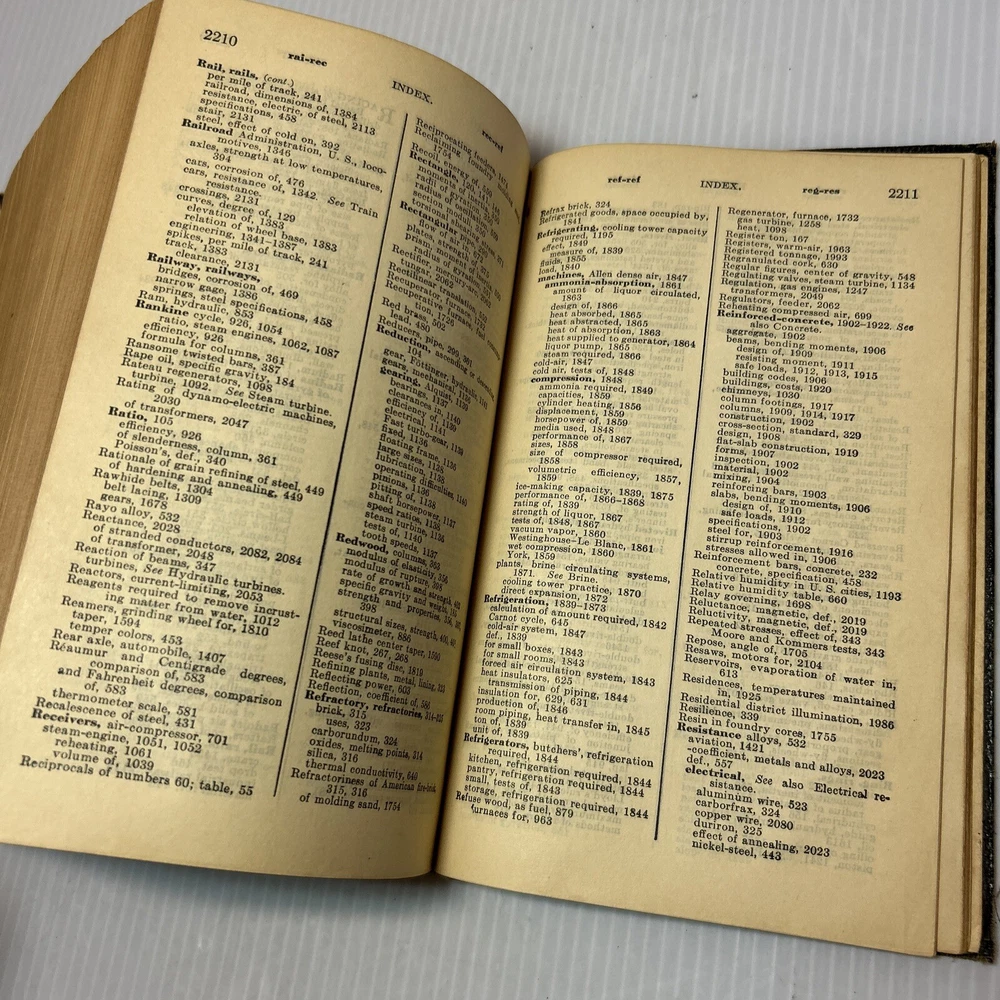 2210
rai-rec
INDEX.
Rail, rails, (cont.)
per mile of track, 241
railroad, dimensions of, 1384
resistance, electric, of steel, 2113
specifications, 458
stair, 2131
steel, effect of cold on, 392
Railroad Administration, U. S., loco-
motives, 1346
axles, strength at low temperatures,
394
cars, corrosion of, 476
cars, resistance of, 1342. See Train
resistance.
crossings, 2131
curves, degree of, 129
elevation of, 1383
relation of wheel base, 1383
engineering, 1341-1387
spikes, per mile of track, 241
track, 1383
clearance, 2131
Railway, railways,
bridges, corrosion of, 469
narrow gage, 1386
springs, steel specifications, 458
Ram, hydraulic, 853
Rankine cycle, 926, 1054
ratio, steam engines, 1062, 1087
efficiency, 926
formula for columns, 361
Ransome twisted bars, 387
Rape oil, specific gravity, 184
Rateau regenerators, 1098
turbine, 1092. See Steam turbine.
Rating of dynamo-electric machines,
2030
of transformers, 2047
Ratio, 105
efficiency, 926
of slenderness, column, 361
Poisson's, def., 340
Rationale of grain refining of steel, 449
of hardening and annealing, 449
Rawhide belts, 1304
belt lacing, 1309
gears, 1678
Rayo alloy, 532
Reactance, 2028
of stranded conductors, 2082, 2084
of transformer, 2048
Reaction of beams, 347
turbines, See Hydraulic turbines.
Reactors, current-limiting, 2053
Reagents required to remove incrust-
ing matter from water, 1012
Reamers, grinding wheel for, 1810
taper, 1594
temper colors, 453
Rear axle, automobile, 1407
Réaumur and Centigrade degrees,
comparison of, 583
and Fahrenheit degrees, comparison
of, 583
thermometer scale, 581
Recalescence of steel, 431
Receivers, air-compressor, 701
steam-engine, 1051, 1052
reheating, 1061
volume of, 1039
Reciprocals of numbers 60; table, 55
rec-ref
Reciprocating feeders,
Reclaiming foundry
1754
Recoil, energy of,
Rectangle,
moments of
radii of gyration,
section modulus,
torsional
Rectangular pipes,
flow of air in,
plates, strength of,
prism, moment of
radius of gyration,
Rectifier, mercury-arc,
tungar, 2062
Rectilinear translation,
Recuperative
Recuperator,
Red
brass, 502
lead, 480
Reducers, pipe, 299, 361
Reduction, ascending
104
gear, Föttinger hydraulic,
gears, mechanical,
gearing,
bearings, 1137
clearances in, 1140
efficiency of, 1139
electrical, 1141
fast turbo-gear, 1139
fixed, 1136
floating frame, 1136
large sizes, 1138
lubrication, 1138
operating difficulties, 1140
pinions, 1136
pitting of, 1138
shaft horsepower, 1137
speed ratios, 1138
steam turbine, 1136
tests of, 1140
tooth speeds, 1137
Redwood, columns, 363
modulus of elasticity, 356
modulus of rupture, 398
rate of growth and strength,
specific gravity and weight,
strength and properties,
398
structural sizes, strength,
viscosimeter, 886
Reed lathe center taper, 1595
Reef knot, 267, 268
Reese's fusing disc, 1819
Refining plants, metal lining,
Reflecting power, 603
Reflection, coefficient of, 586
Refractory, refractories, 314-325
brick, 315
uses, 323
carborundum, 324
oxides, melting points, 314
silica, 316
thermal conductivity, 646
Refractoriness of American fire-brick,
315, 316
of molding sand, 1754
ref-ref
INDEX.
reg-res
2211
Refrax brick, 324
Refrigerated goods, space occupied by,
1841
Refrigerating, cooling tower capacity
required, 1195
effect, 1849
measure of, 1839
fluids, 1855
load, 1840
machines, Allen dense air, 1847
ammonia-absorption, 1861
amount of liquor circulated,
1863
design of, 1866
heat absorbed, 1865
heat abstracted, 1865
heat of absorption, 1863
heat supplied to generator, 1864
liquor pump, 1865
steam required, 1866
cold-air, 1847
cold air, tests of, 1848
compression, 1848
ammonia required, 1849
capacities, 1859
cylinder heating, 1856
displacement, 1859
horsepower of, 1859
media used, 1848
performance of, 1867
sizes, 1858
size of compressor required,
1858
volumetric efficiency, 1857,
1859
ice-making capacity, 1839, 1875
performance of, 1866-1868
rating of, 1839
strength of liquor, 1867
tests of, 1848, 1867
vacuum vapor, 1860
Westinghouse-Le Blanc, 1861
wet compression, 1860
York, 1859
plants, brine circulating systems,
1871. See Brine.
cooling tower practice, 1870
direct expansion, 1872
Refrigeration, 1839-1873
calculation of amount required, 1842
Carnot cycle, 645
cold-air system, 1847
def., 1839
for small boxes, 1843
for small rooms, 1843
forced air circulation system, 1843
heat insulators, 625
transmission of piping, 1844
insulation for, 629, 631
production of, 1846
room piping, heat transfer in, 1845
ton of, 1839
unit of, 1839
Refrigerators, butchers', refrigeration
required, 1844
kitchen, refrigeration required, 1844
pantry, refrigeration required, 1844
small, tests of, 1843
storage, refrigeration required, 1844
Refuse wood, as fuel, 879
furnaces for, 963
Regenerator, furnace, 1732
gas turbine, 1258
heat, 1098
Register ton, 167
Registers, warm-air, 1963
Registered tonnage, 1993
Regranulated cork, 630
Regular figures, center of gravity, 548
Regulating valves, steam turbine, 1134
Regulation, gas engines, 1247
transformers, 2049
Regulators, feeder, 2062
Reheating compressed air, 699
Reinforced-concrete, 1902-1922. See
also Concrete.
aggregate, 1902
beams, bending moments, 1906
design of, 1909
resisting moment, 1911
safe loads, 1912, 1913, 1915
building codes, 1906
buildings, costs, 1920
chimneys, 1030
column footings, 1917
columns, 1909, 1914, 1917
construction, 1902
cross-section, standard, 329
design, 1908
flat-slab construction, 1919
forms, 1907
inspection, 1902
material, 1902
mixing, 1904
reinforcing bars, 1903
slabs, bending moments, 1906
design of, 1910
safe loads, 1912
specifications, 1902
steel for, 1903
stirrup reinforcement, 1916
stresses allowed in, 1906
Reinforcement bars, concrete, 232
concrete, specification, 458
Relative humidity in U. S. cities, 1193
Relative humidity table, 660
Relay governing, 1698
Reluctance, magnetic, def., 2019
Reluctivity, magnetic, def., 2019
Repeated stresses, effect of, 343
Moore and Kommers tests, 343
Repose, angle of, 1705
Resaws, motors for, 2104
Reservoirs, evaporation of water in,
613
Residences, temperatures maintained
in, 1925
Residential district illumination, 1986
Resilience, 339
Resin in foundry cores, 1755
Resistance alloys, 532
aviation, 1421
-coefficient, metals and alloys, 2023
def., 557
electrical, See also Electrical re-
sistance.
aluminum wire, 523
carborfrax, 324
copper wire, 2080
duriron, 325
effect of annealing, 2023
nickel-steel, 443